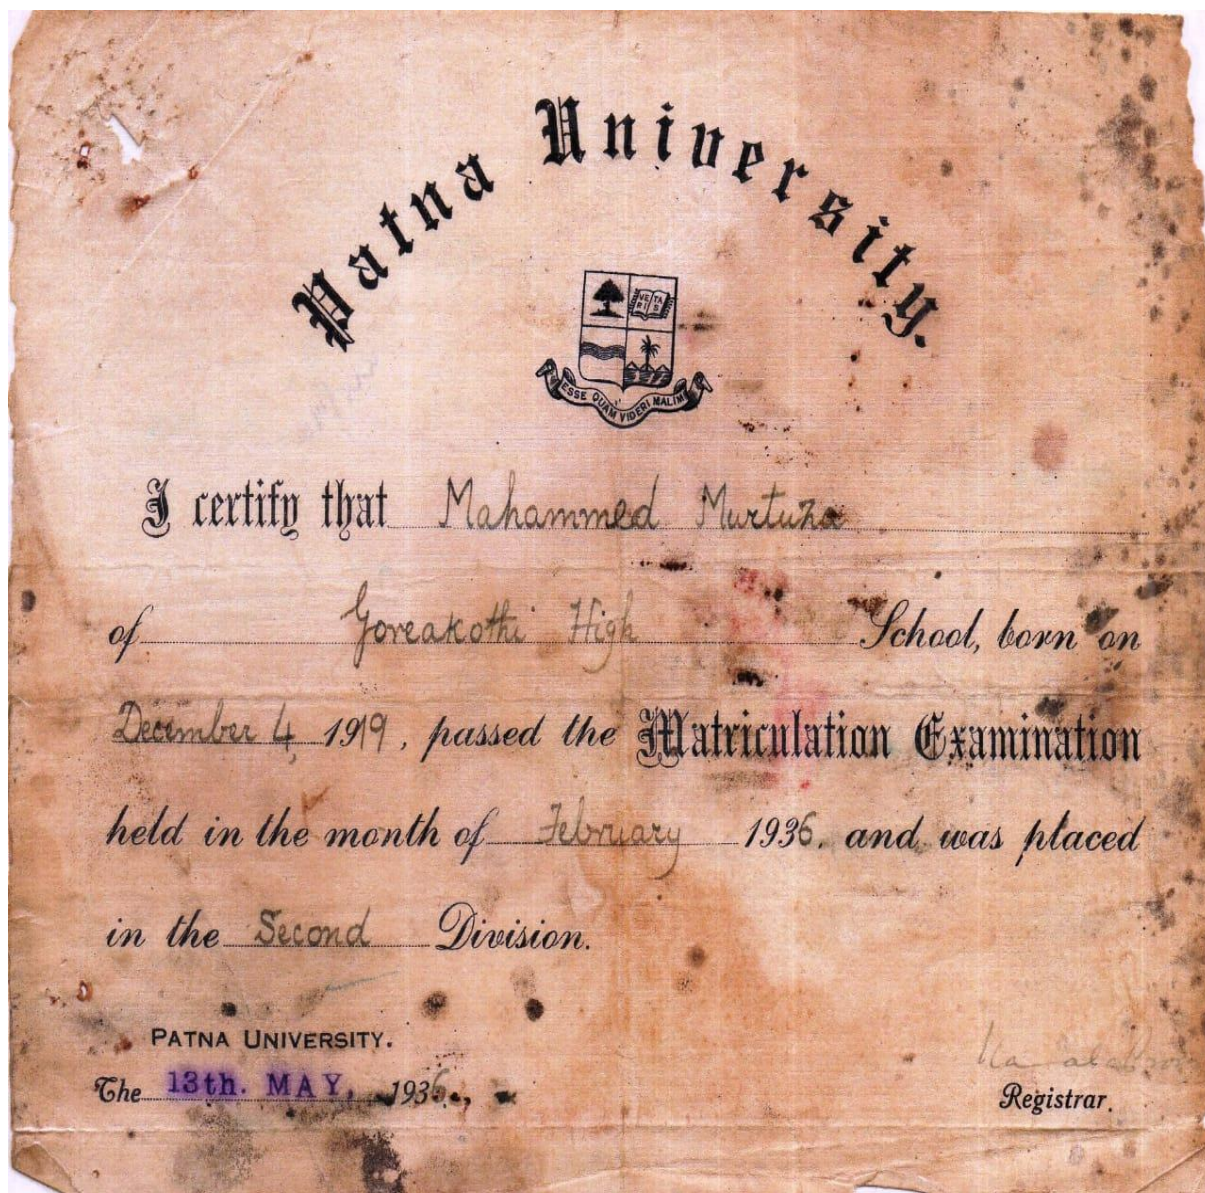 Patna University.
VE TA
RI S
ESSE QUAM VIDERI MALIM
I certify that Mahammed Murtuza
of Goreakothi High School, born on
December 4, 1919, passed the Matriculation Examination
held in the month of February 1936. and was placed
in the Second Division.
PATNA UNIVERSITY.
The 13th. MAY, 1936.
Registrar.